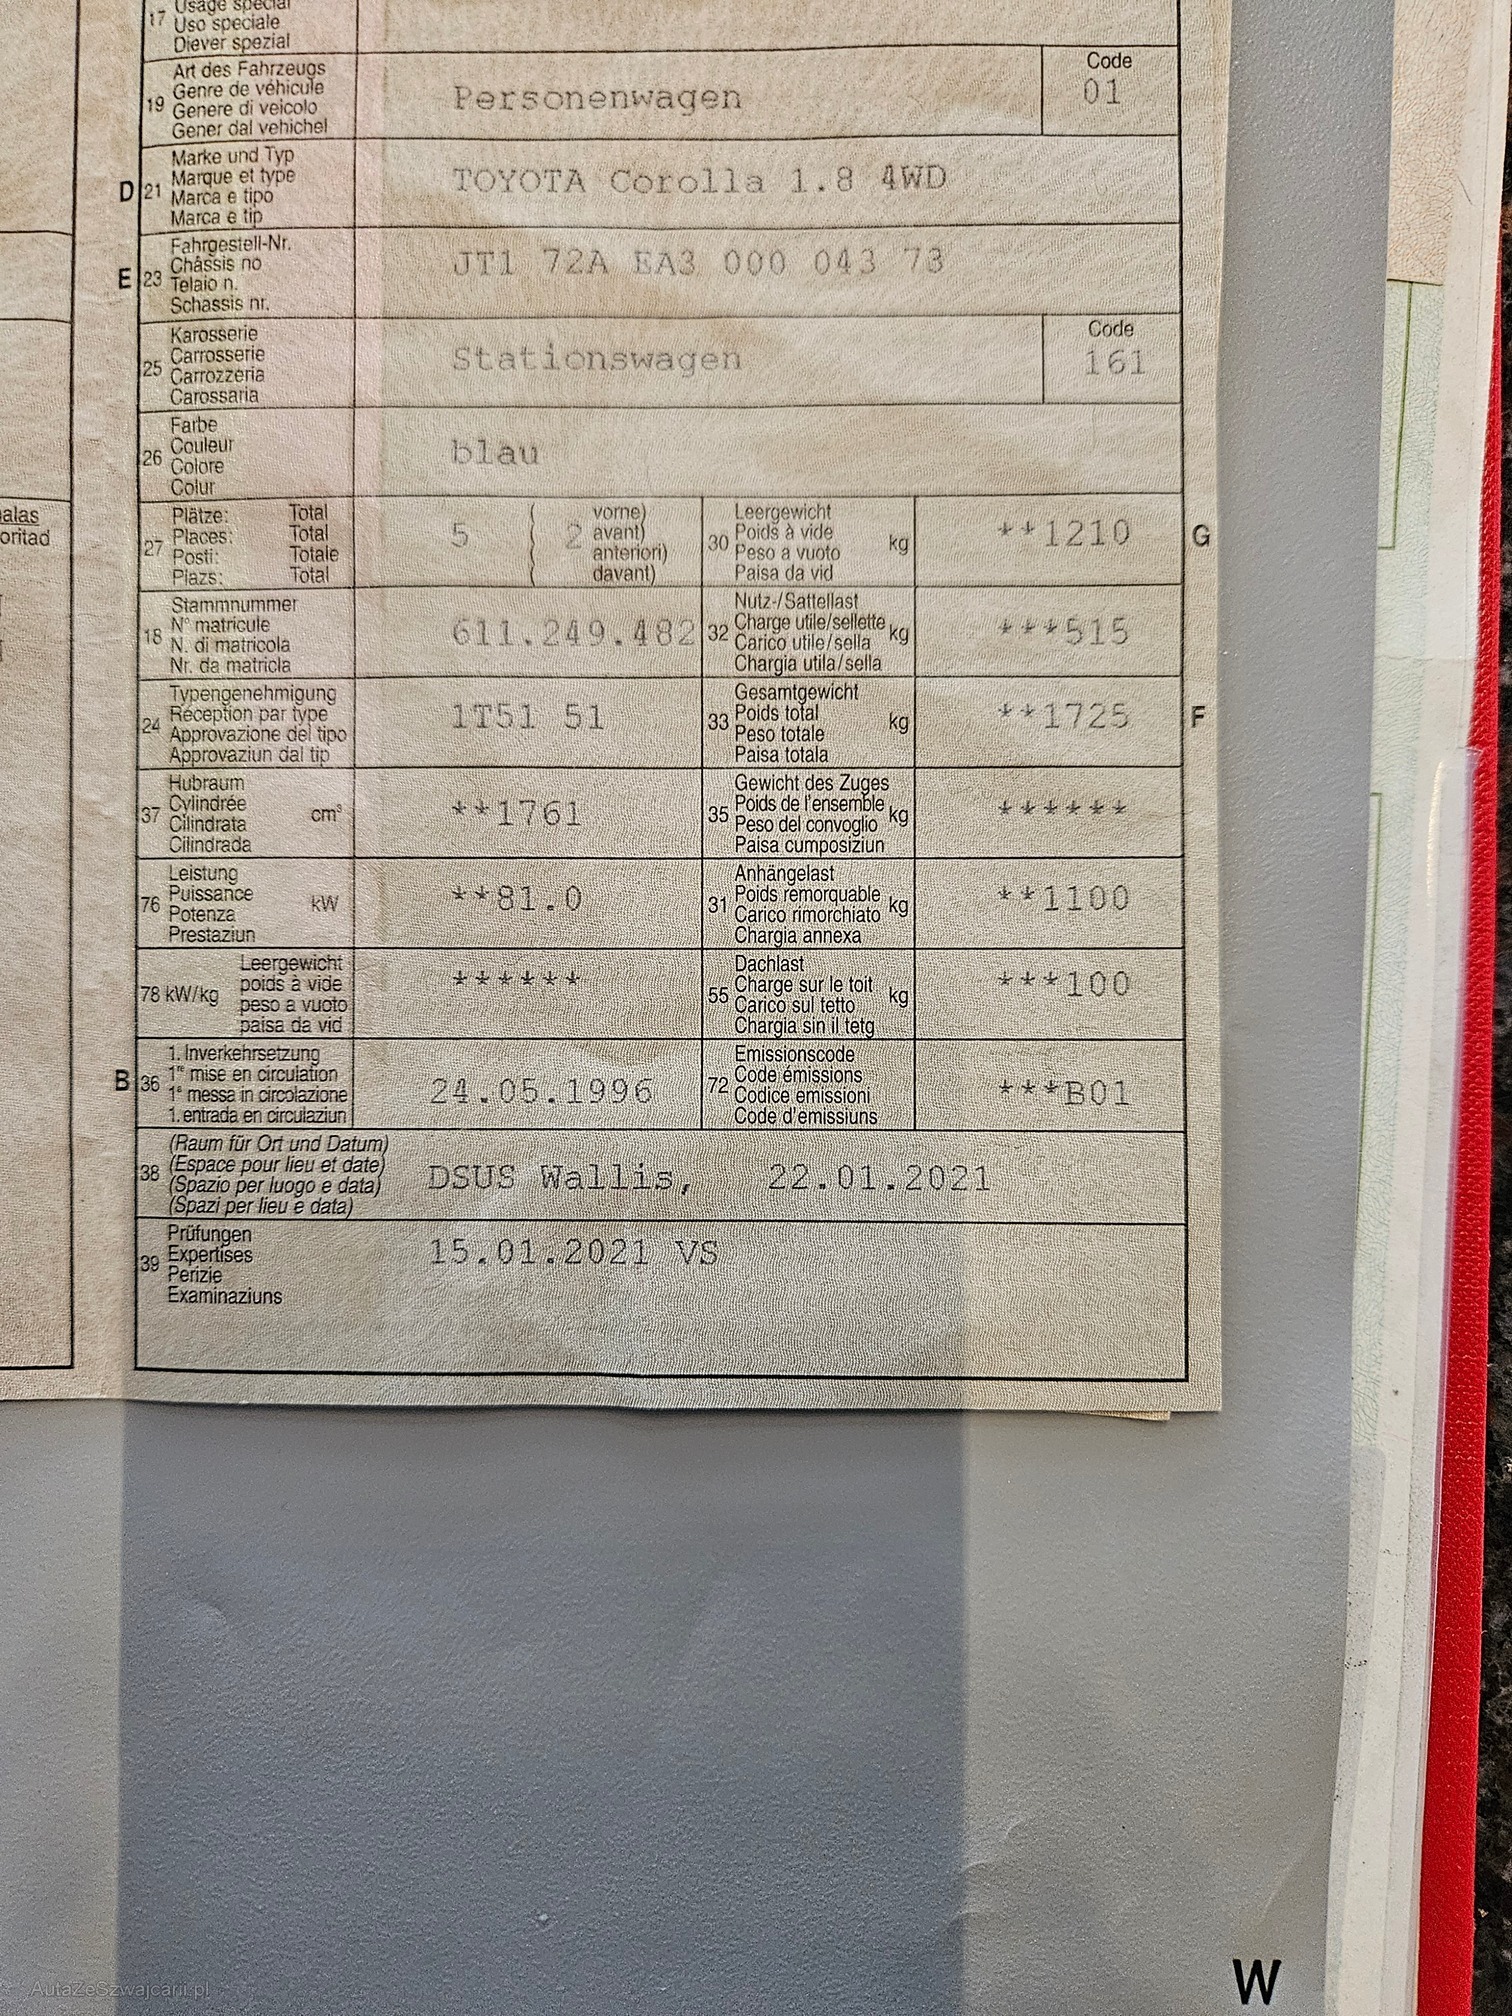 17 Usage special
Uso speciale
Diever spezial
19 Art des Fahrzeugs
Genre de véhicule
Genere di veicolo
Gener dal vehichel
Personenwagen
Code
01
D 21 Marke und Typ
Marque et type
Marca e tipo
Marca e tip
TOYOTA Corolla 1.8 4WD
E 23 Fahrgestell-Nr.
Châssis no
Telaio n.
Schassis nr.
JT1 72A EA3 000 043 73
25 Karosserie
Carrosserie
Carrozzeria
Carossaria
Stationswagen
Code
161
26 Farbe
Couleur
Colore
Colur
blau
alas
oritad
27 Plätze: Total
Places: Total
Posti: Totale
Plazs: Total
5 ( 2 vorne)
( avant)
( anteriori)
( davant)
30 Leergewicht
Poids à vide
Peso a vuoto
Paisa da vid
kg
**1210 G
18 Stammnummer
N° matricule
N. di matricola
Nr. da matricla
611.249.482
32 Nutz-/Sattellast
Charge utile/sellette
Carico utile/sella
Chargia utila/sella
kg
***515
24 Typengenehmigung
Réception par type
Approvazione del tipo
Approvaziun dal tip
1T51 51
33 Gesamtgewicht
Poids total
Peso totale
Paisa totala
kg
**1725 F
37 Hubraum
Cylindrée
Cilindrata
Cilindrada
cm³
**1761
35 Gewicht des Zuges
Poids de l'ensemble
Peso del convoglio
Paisa cumposiziun
kg
******
76 Leistung
Puissance
Potenza
Prestaziun
kW
**81.0
31 Anhängelast
Poids remorquable
Carico rimorchiato
Chargia annexa
kg
**1100
78 kW/kg Leergewicht
poids à vide
peso a vuoto
paisa da vid
******
55 Dachlast
Charge sur le toit
Carico sul tetto
Chargia sin il tetg
kg
***100
B 36 1. Inverkehrsetzung
1re mise en circulation
1a messa in circolazione
1. entrada en circulaziun
24.05.1996
72 Emissionscode
Code émissions
Codice emissioni
Code d'emissiuns
***B01
38 (Raum für Ort und Datum)
(Espace pour lieu et date)
(Spazio per luogo e data)
(Spazi per lieu e data)
DSUS Wallis, 22.01.2021
39 Prüfungen
Expertises
Perizie
Examinaziuns
15.01.2021 VS
W
AutaZeSzwajcarii.pl